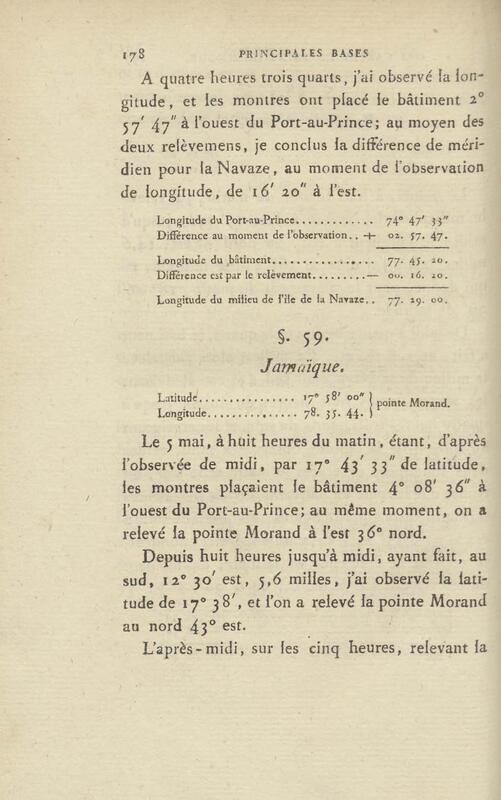 178 PRINCIPALES BASES
A quatre heures trois quarts, j'ai observé la lon-
gitude, et les montres ont placé le bâtiment 2°
57′ 47″ à l'ouest du Port-au-Prince; au moyen des
deux relèvemens, je conclus la différence de méri-
dien pour la Navaze, au moment de l'observation
de longitude, de 16′ 20″ à l'est.
Longitude du Port-au-Prince............ 74° 47′ 33″
Différence au moment de l'observation.. + 02. 57. 47.
Longitude du bâtiment................ 77. 45. 20.
Différence est par le relèvement.........— 00. 16. 20.
Longitude du milieu de l'île de la Navaze.. 77. 29. 00.
§. 59.
Jamaïque.
Latitude............... 17° 58′ 00″ } pointe Morand.
Longitude.............. 78. 35. 44. }
Le 5 mai, à huit heures du matin, étant, d'après
l'observée de midi, par 17° 43′ 33″ de latitude,
les montres plaçaient le bâtiment 4° 08′ 36″ à
l'ouest du Port-au-Prince; au même moment, on a
relevé la pointe Morand à l'est 36° nord.
Depuis huit heures jusqu'à midi, ayant fait, au
sud, 12° 30′ est, 5,6 milles, j'ai observé la lati-
tude de 17° 38′, et l'on a relevé la pointe Morand
au nord 43° est.
L'après-midi, sur les cinq heures, relevant la